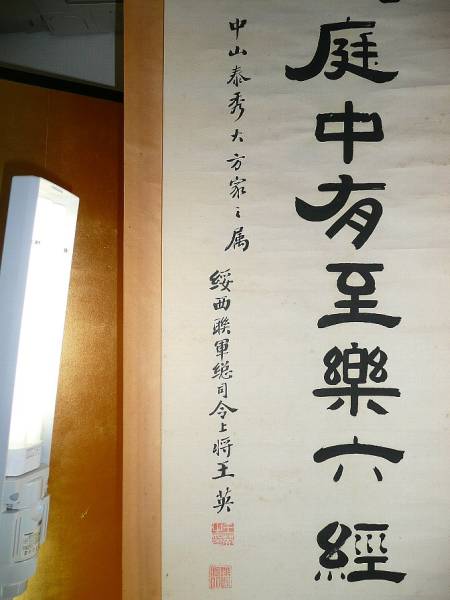 庭中有至樂六經
中山泰秀大方家之属
綏西聯軍總司令上將王英